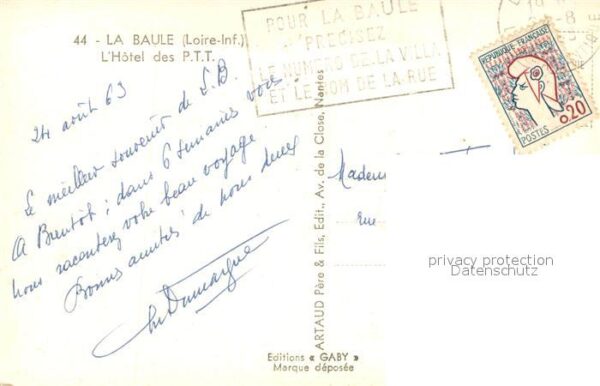 44 - LA BAULE (Loire-Inf.)
L'Hôtel des P.T.T.
POUR LA BAULE
PRECISEZ
LE NUMERO DE LA VILLA
ET LE NOM DE LA RUE
REPUBLIQUE FRANÇAISE
0,20
POSTES
24 août 63
Le meilleur souvenir de L.B.
A Bientôt ; dans 6 semaines vous
nous raconterez votre beau voyage
Bonnes amitiés de nous deux
ARTAUD Père & Fils, Edit., Av. de la Close, Nantes
Madem
Rue
privacy protection
Datenschutz
Editions « GABY »
Marque déposée